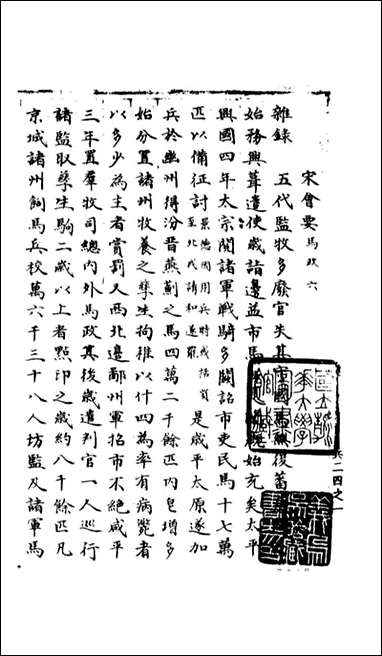 宋會要 馬政六
兵二四之一
雜錄 五代監牧多廢官失其
始務興葺遣使歲詣邊益市馬 始充矣太平
興國四年太宗閱諸軍戰騎多闕詔市吏民馬十七萬
匹以備征討 景德國用兵時或括買至北戎請和遂罷 是歲平太原遂加
兵於幽州得汾晉燕薊之馬四萬二千餘匹內皂增多
始分置諸州牧養之孳生拘稚以什四為率有病斃者
以多少為主者賞罰又西北邊鄜州軍招市不絕咸平
三年置羣牧司總內外馬政其後歲遣判官一人巡行
諸監取孳生駒二歲以上者點印之歲約八千餘匹凡
京城諸州飼馬兵校萬六千三十八人坊監及諸軍馬